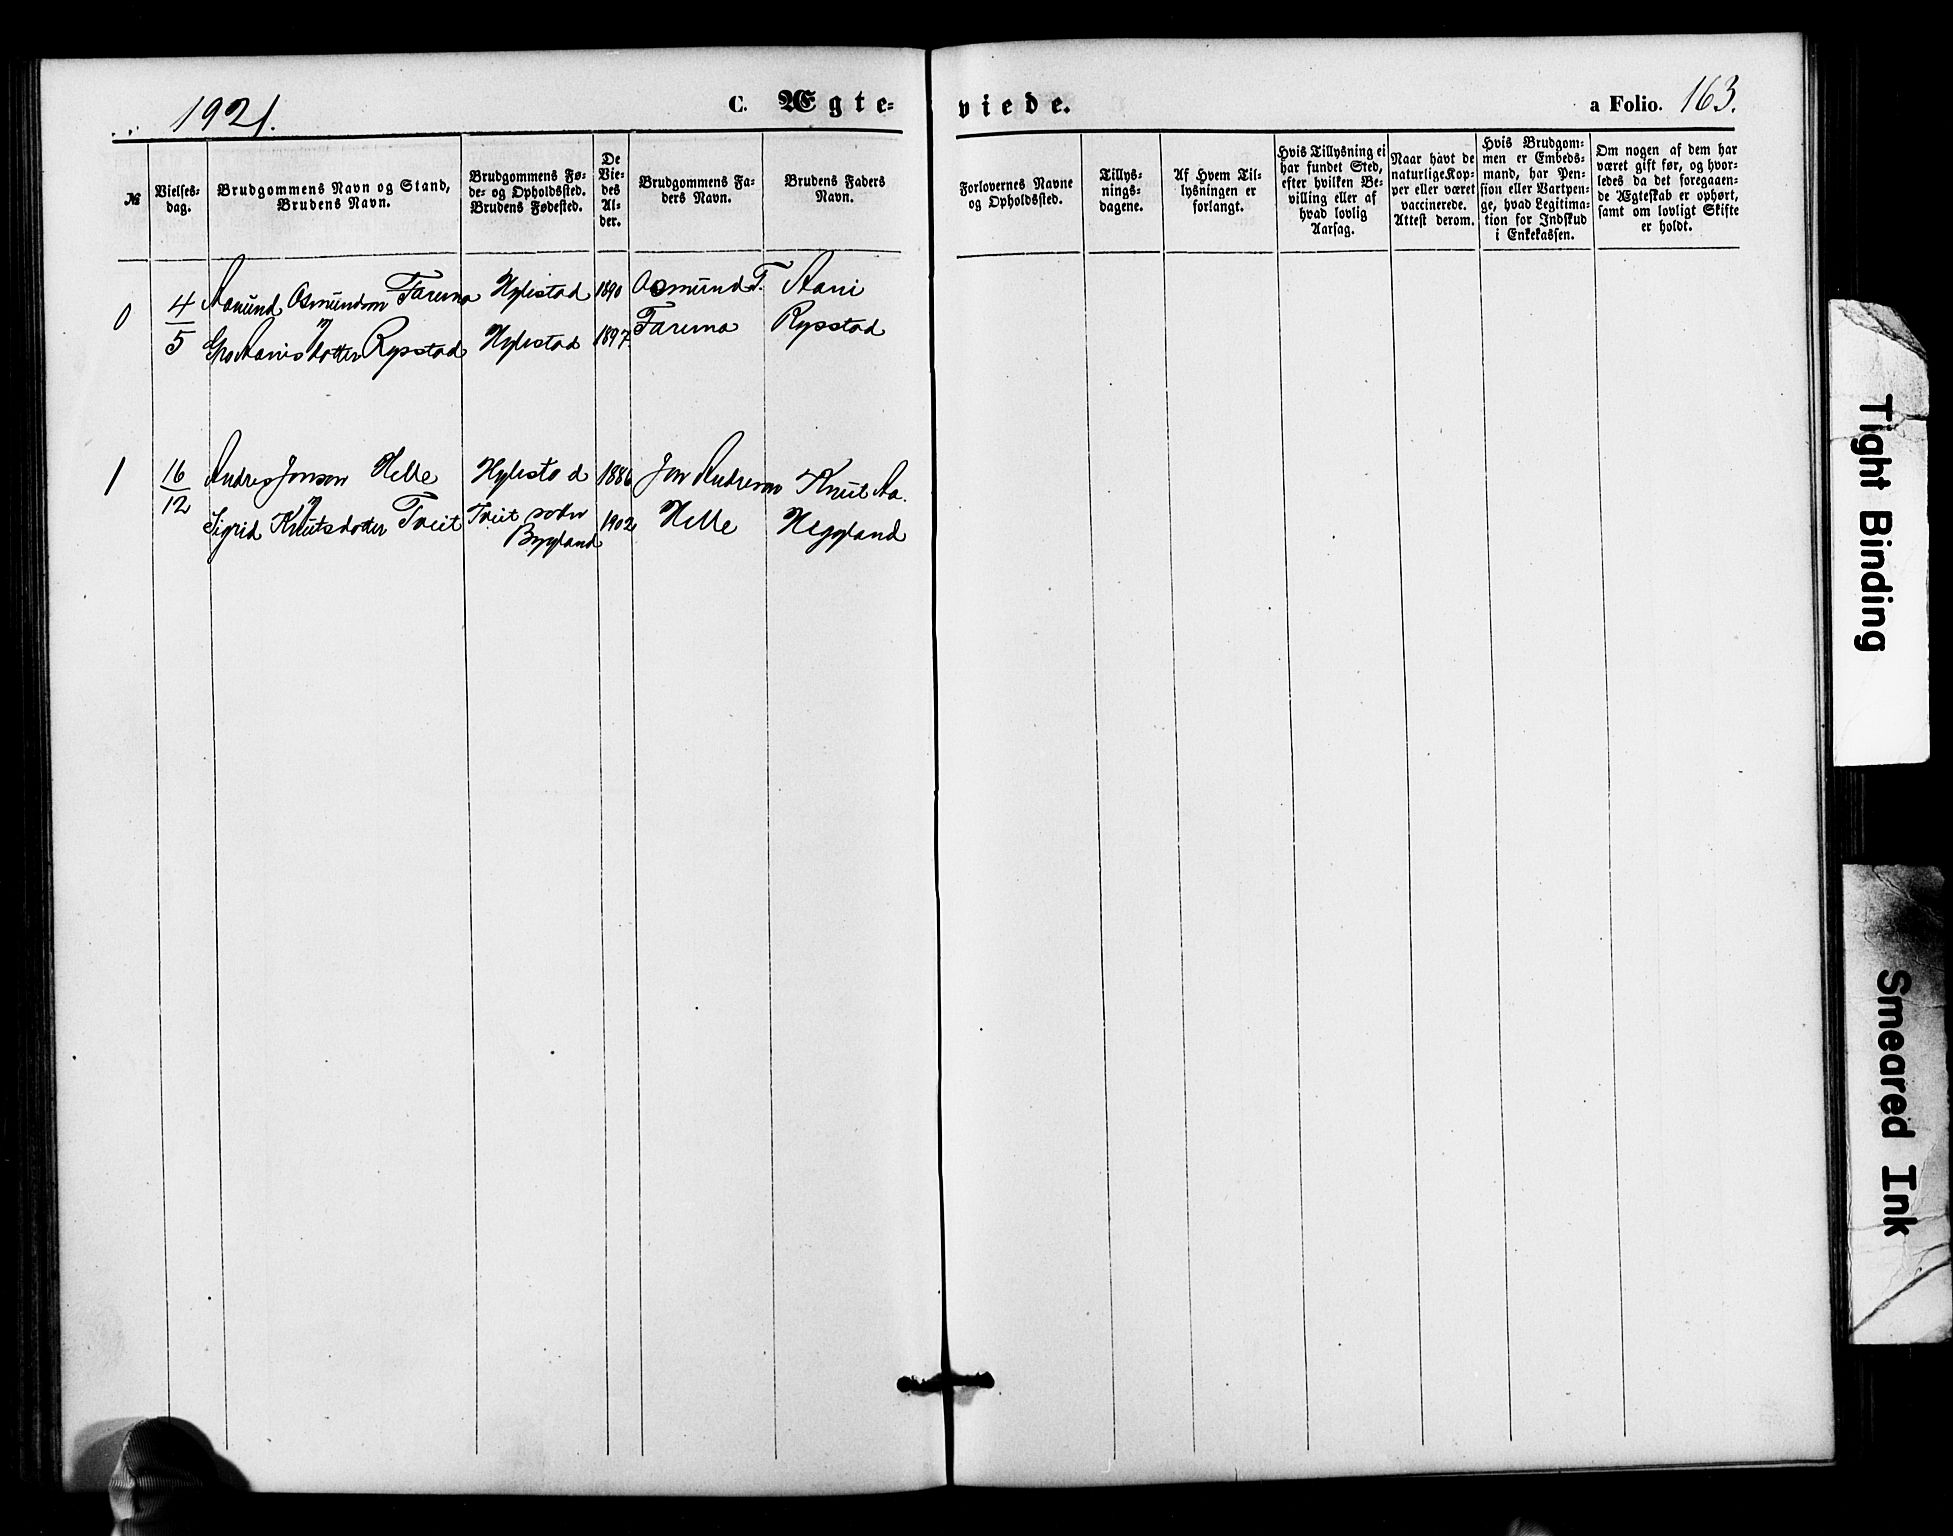 1921.
C. Ægte-
viede.
a Folio. 163.
№
Vielses-
dag.
Brudgommens Navn og Stand,
Brudens Navn.
Brudgommens Fø-
de- og Opholdssted.
Brudens Fødested.
De
Vie-
des
Al-
der.
Brudgommens Fa-
ders Navn.
Brudens Faders
Navn.
Forlovernes Navne
og Opholdssted.
Tillys-
nings-
dagene.
Af Hvem Til-
lysningen er
forlangt.
Hvis Tillysning ei
har fundet Sted,
efter hvilken Be-
villing eller af
hvad lovlig
Aarsag.
Naar havt de
naturlige Kop-
per eller været
vaccinerede.
Attest derom.
Hvis Brudgom-
men er Embeds-
mand, har Pen-
sion eller Vartpen-
ge, hvad Legitima-
tion for Indskud
i Enkekassen.
Om nogen af dem har
været gift før, og hvor-
ledes da det foregaaen-
de Ægteskab er ophørt,
samt om lovligt Skifte
er holdt.
0 4/5 Aanund Osmundson Hylestad 1890 Osmund T. Aani
Gro Aanisdotter Rysstad Hylestad 1897 Rysstad
1 16/12 Andres Jonson Helle Hylestad 1886 Jon Andreson Knut Aa.
Sigrid Knutsdotter Tveit Tveit sokn 1902 Helle Heggland
Bygland
Tight Binding
Smeared Ink